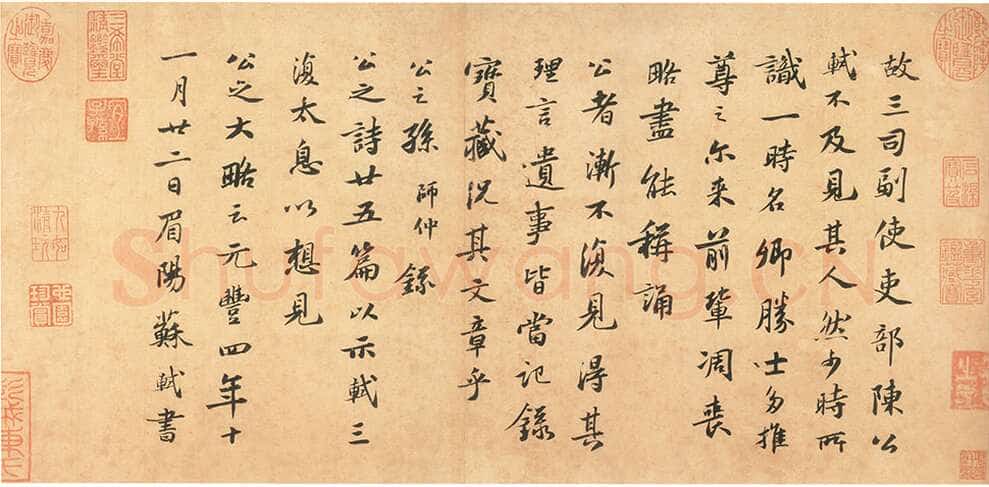 故三司副使吏部陳公
軾不及見其人然少時所
識一時名卿勝士多推
尊之尓来前輩凋喪
略盡能稱誦
公者漸不復見得其
理言遺事皆當記録
寶藏况其文章乎
公之孫師仲録
公之詩廿五篇以示軾三
復太息以想見
公之大略云元豐四年十
一月廿二日眉陽蘇軾書
Shufawang.CN